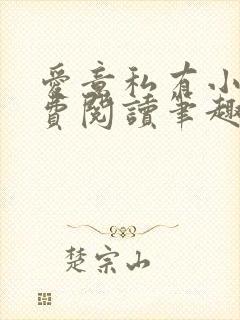 愛意私有小
費閱讀筆趣
楚宗山